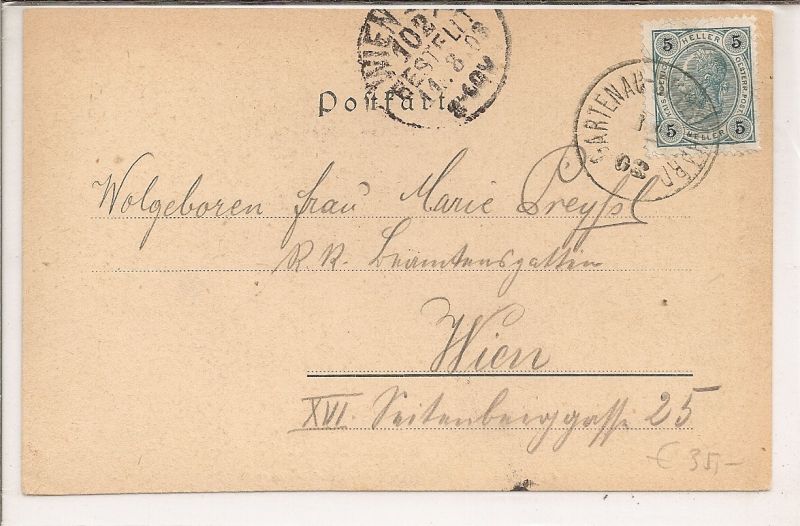 WIEN
102
BESTELLT
11.8.03
Postkarte
5 HELLER 5
KAIS. KOENIGL. OESTERR. POST
5 HELLER 5
GARTENAU
03
Wolgeboren Frau Marie Preyßl
K. K. Beamtensgattin
Wien
XVI. Seitenberggasse 25
€ 35,-